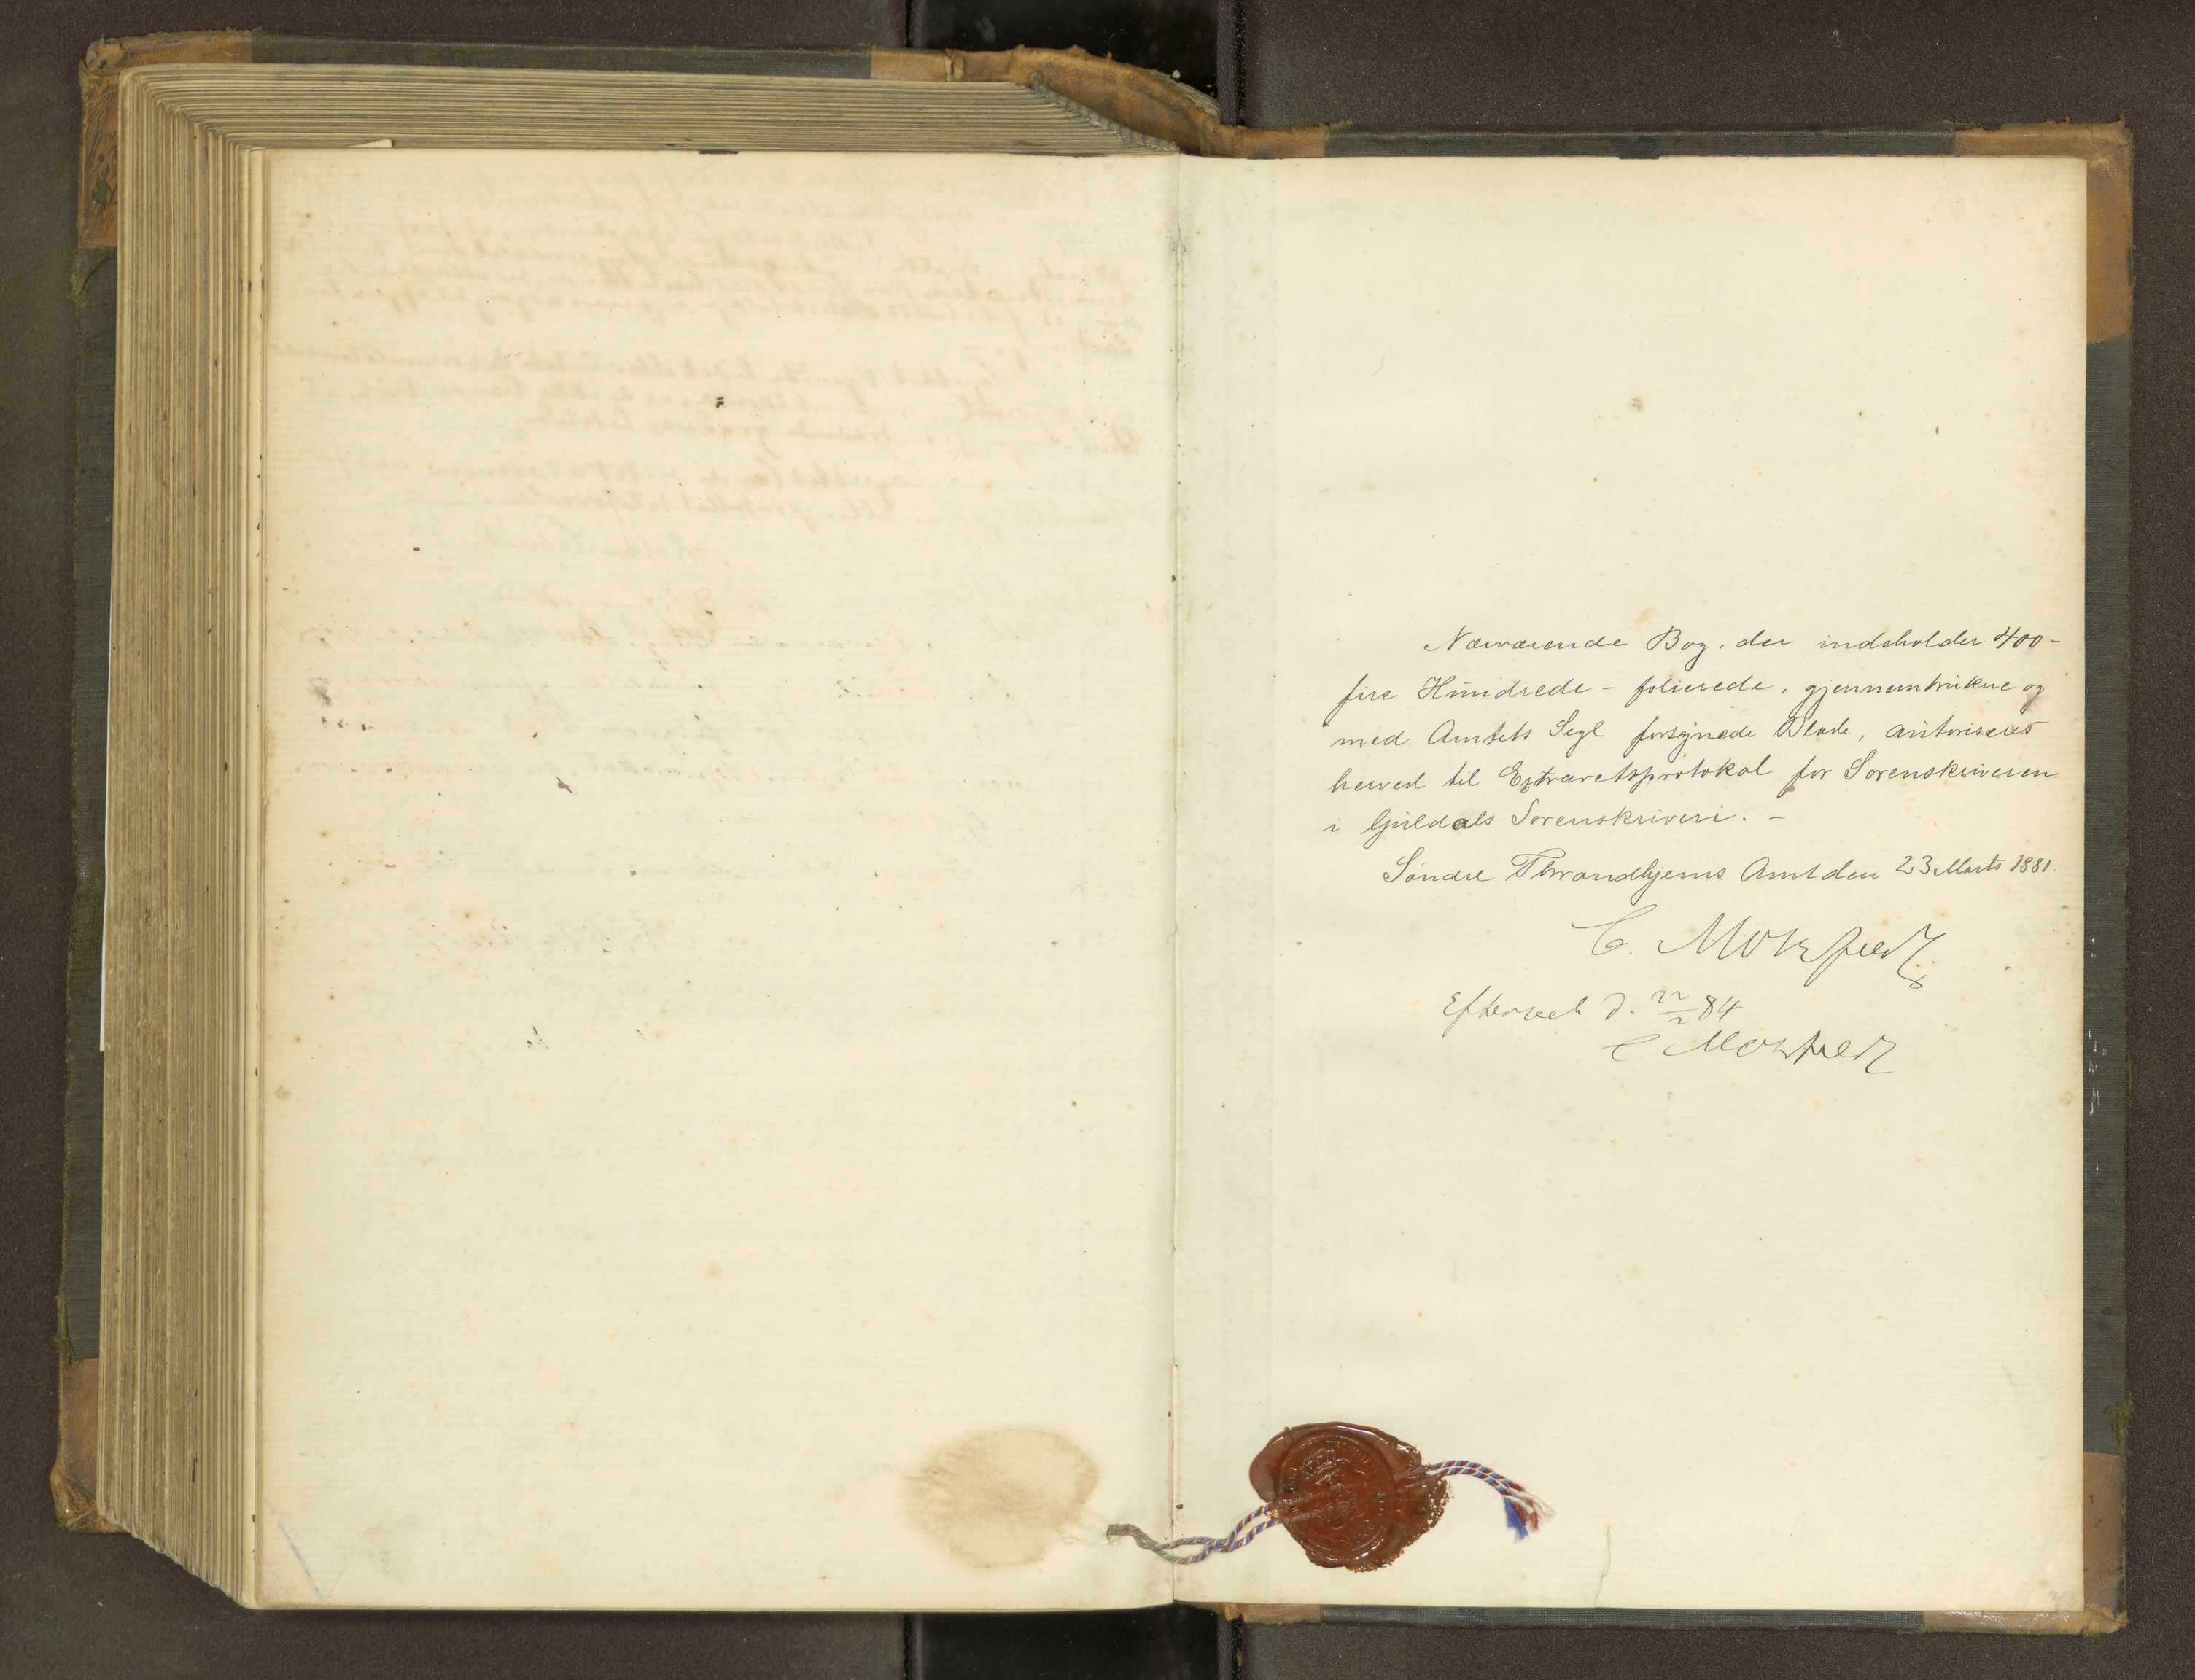 Nærværende Bog, der indeholder 400 -
fire Hundrede - folierede, gjennemtrukne og
med Amtets Segl forsynede Blade, autoriseres
herved til Extraretsprotokol for Sorenskriveren
i Guldals Sorenskriveri. -
Søndre Throndhjems Amt den 23 Marts 1881.
C. Motzfeldt
Efterseet d. 22/2 84
C Motzfeldt